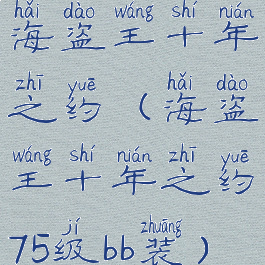 hǎi dào wáng shí nián
海盗王十年
zhī yuē hǎi dào
之约（海盗
wáng shí nián zhī yuē
王十年之约
jí zhuāng
75级bb装）